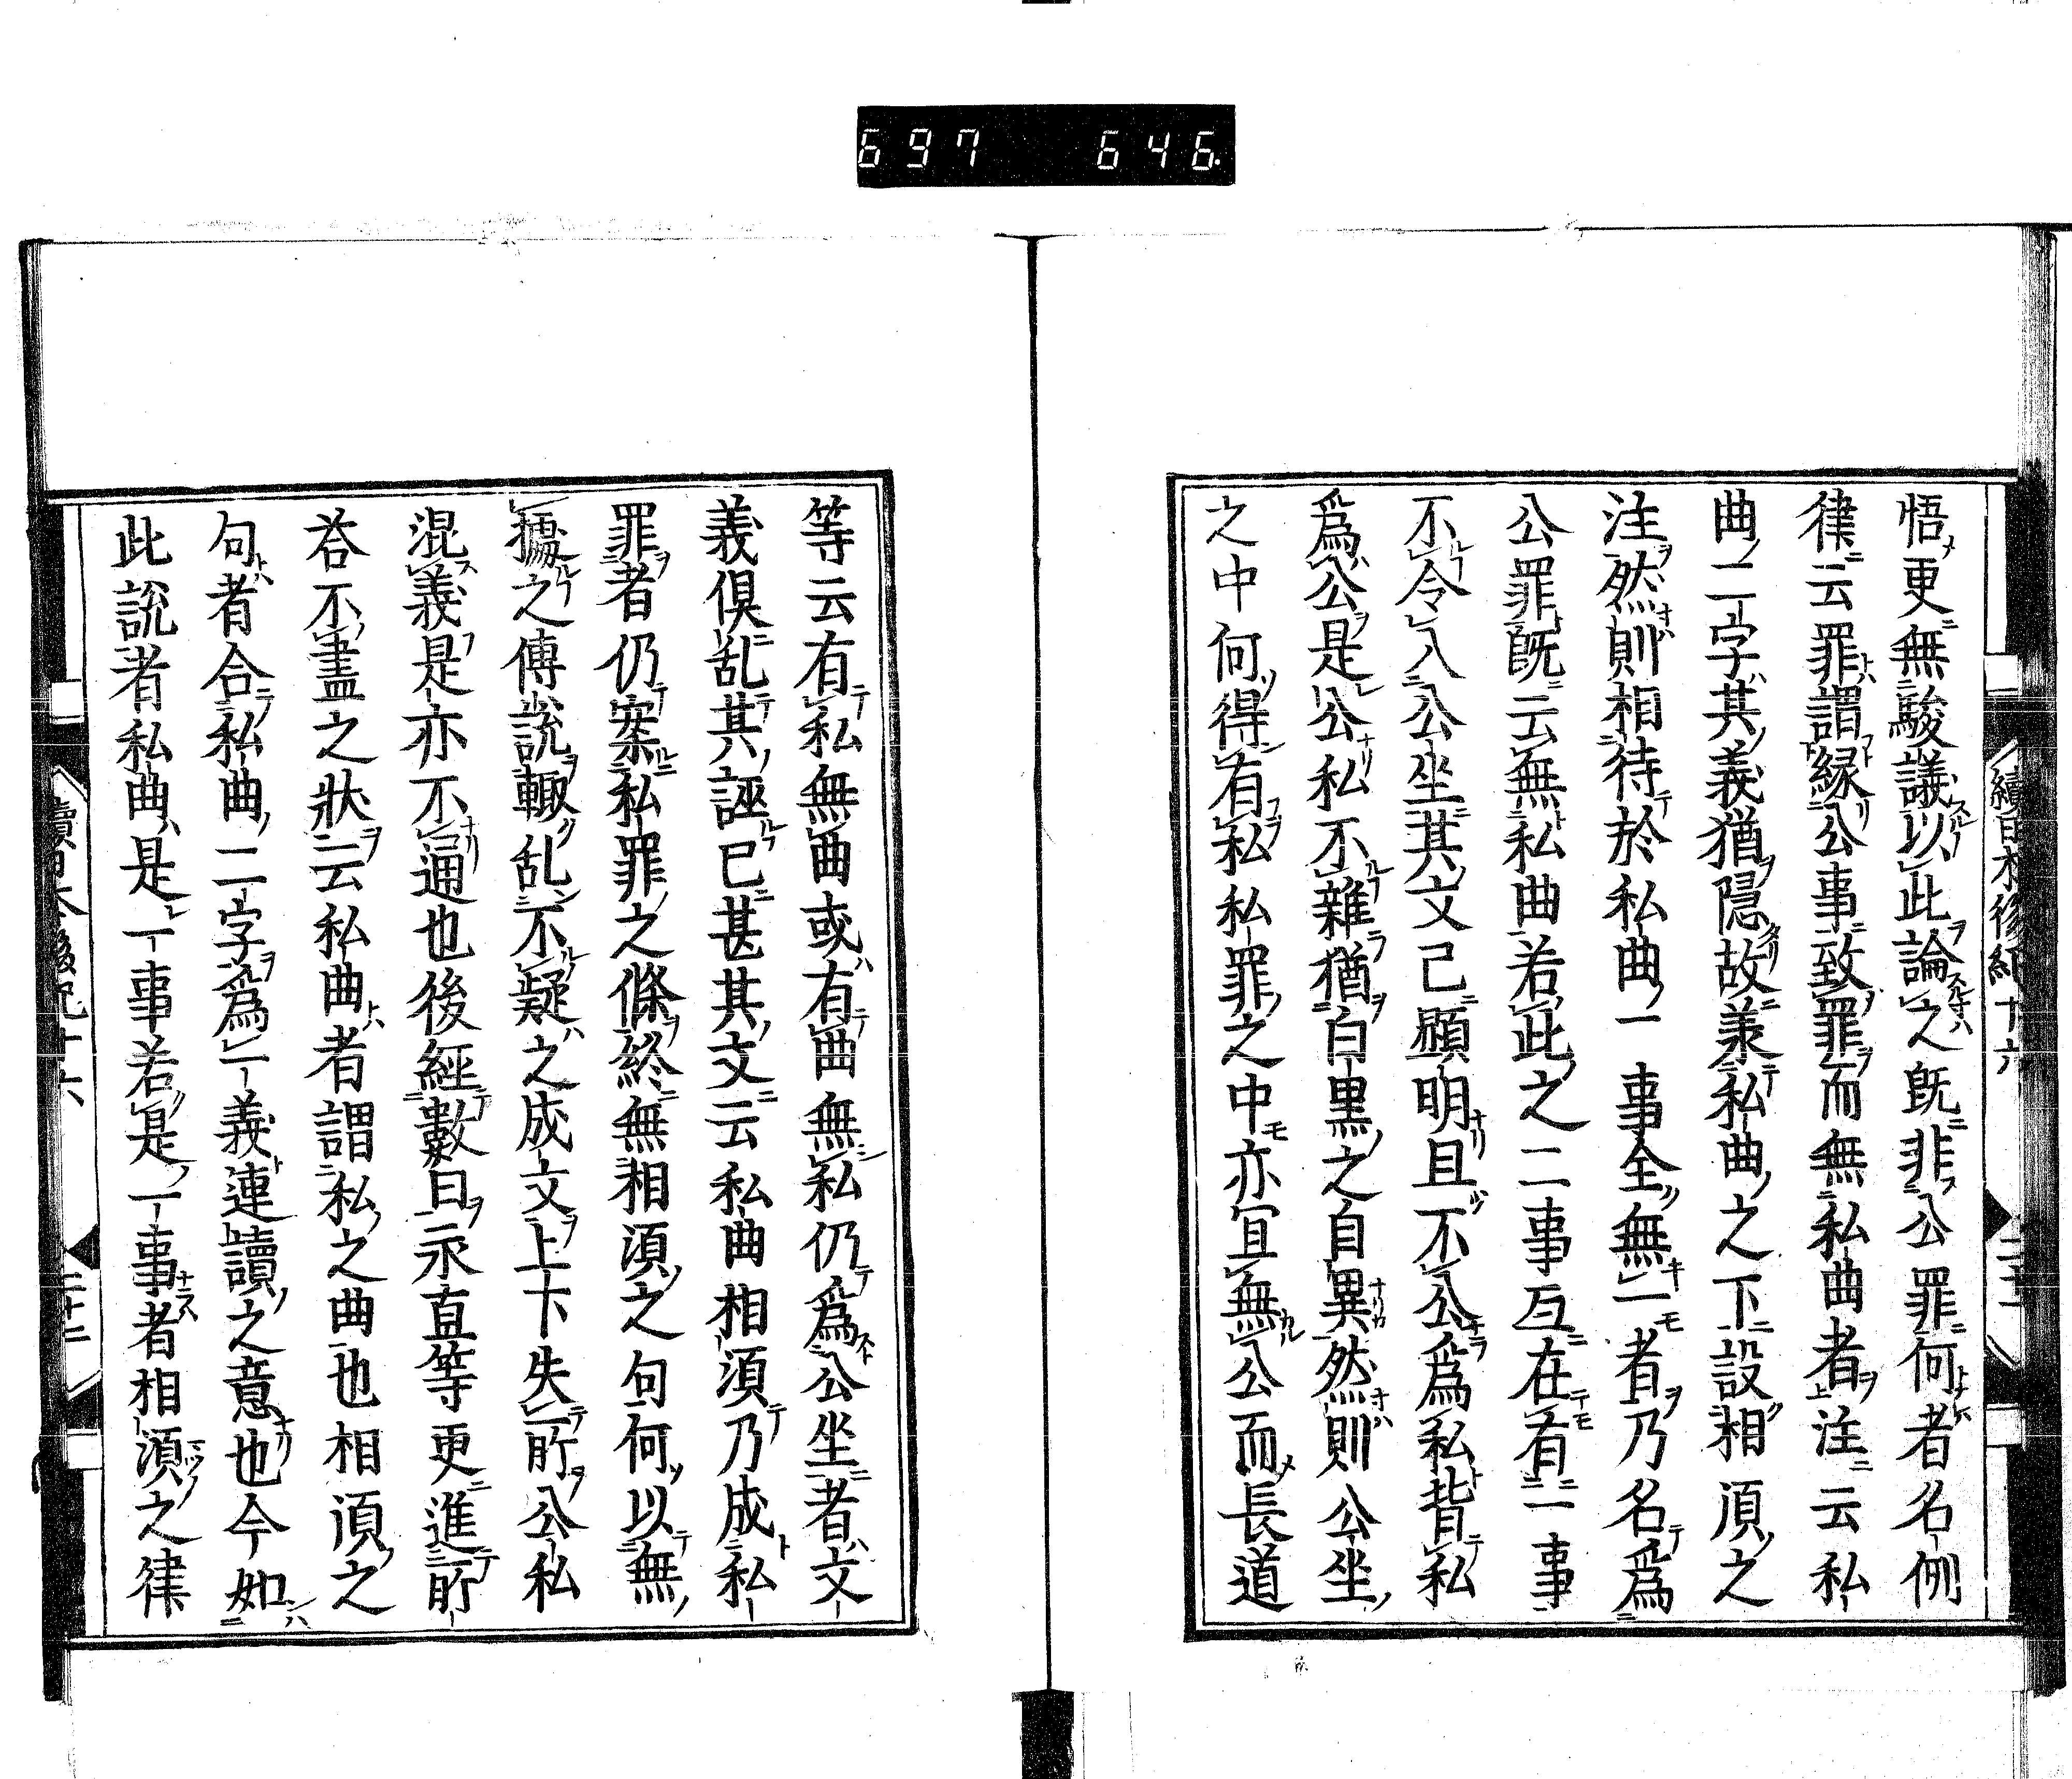 697 646.
續日本後紀十六
二十一
悟更無駿議以此論之既非公罪何者名例
律云罪謂緣公事致罪而無私曲者注云私
曲二字其義猶隱故美私曲之下設相湏之
注然則相待於私曲一事全無一者乃名爲
公罪既云無私曲若此之二事互在有一事
不令入公坐其文已顯明且不公爲私背私
爲公是公私不雜猶白黒之自異然則公坐
之中何得有私私罪之中亦宜無公而長道
等云有私無曲或有曲無私仍爲公坐者文
義倶乱其誣已甚其文云私曲相湏乃成私
罪者仍案私罪之條終無相湏之句何以無
據之傳説輙乱不疑之成文上下失所公私
混義是亦不通也後經數日永直等更進所
荅不盡之狀云私曲者謂私之曲也相湏之
句者合私曲二字爲一義連讀之意也今如
此説者私曲是一事若是一事者相湏之律
續日本後紀十六
二十二